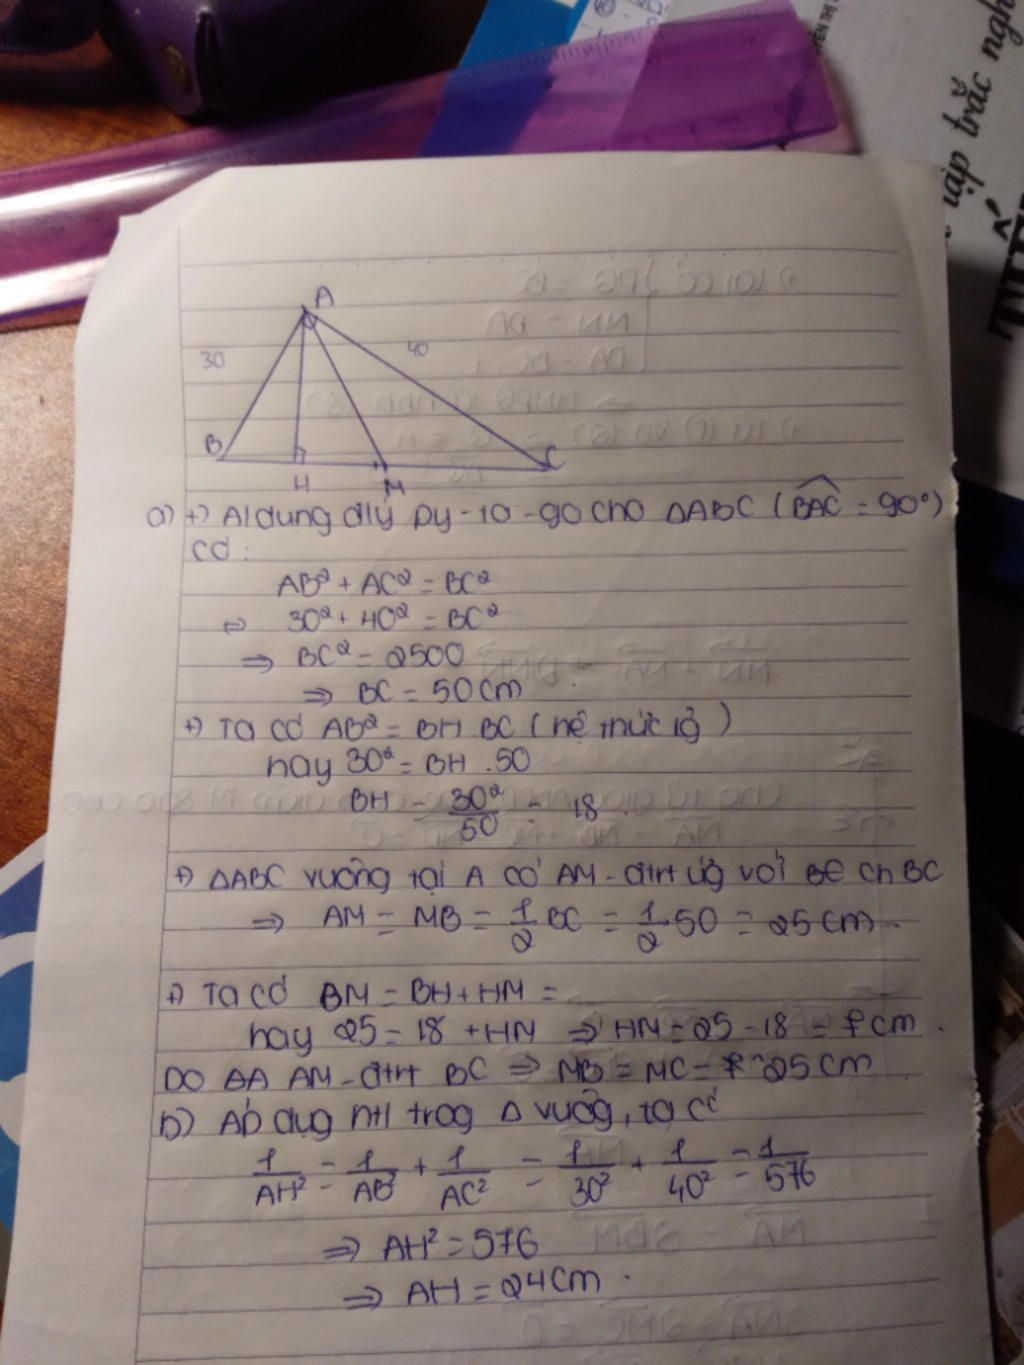 nghi
đạp trắc
A
30
40
B
C
H
M
a) +) Aldung dlý Py-ta-go cho ΔABC (BAC = 90°)
có :
AB² + AC² = BC²
⇔ 30² + 40² = BC²
⇒ BC² = 2500
⇒ BC = 50cm
+) Ta có AB² = BH. BC (hệ thức lg)
hay 30² = BH .50
BH = 30²/50 = 18
+) ΔABC vuông tại A có AM-đtrt ứg với BE ch BC
⇒ AM = MB = 1/2 BC = 1/2.50 = 25cm.
+) Ta có BM = BH + HM =
hay 25 = 18 + HN ⇒ HN = 25 - 18 = 7cm.
DO AM-đtrt BC ⇒ MB = MC = 25cm
b) Áp dụg htl trog Δ vuôg, ta có
1/AH² = 1/AB² + 1/AC² = 1/30² + 1/40² = 1/576
⇒ AH² = 576
⇒ AH = 24cm.